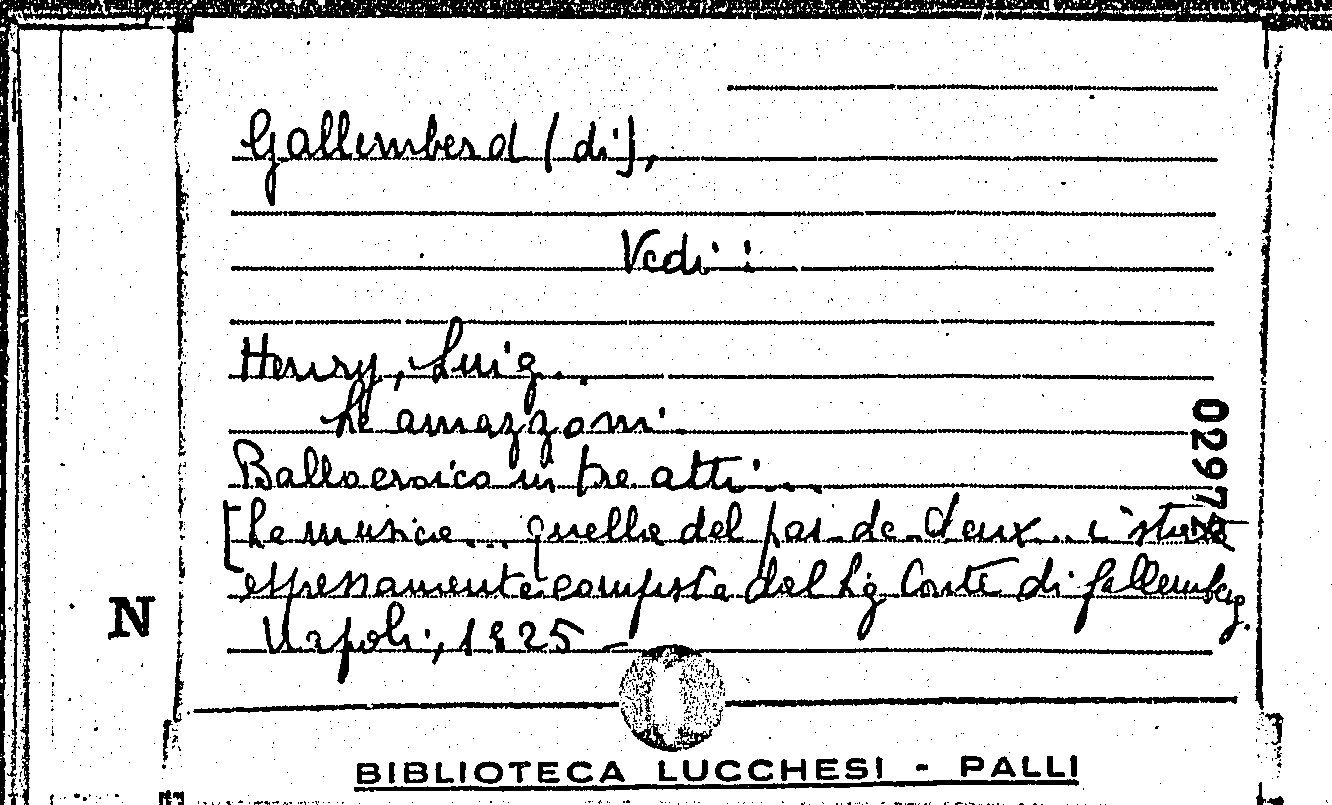 Gallemberd (di),
Vedi:
Henry, Luig..
Le amazzoni.
Ballo eroico in tre atti...
[La musica... quella del pas-de-deux... è stata
espressamente composta dal Sig Conte di Gallemberg.
Napoli, 1825 -
02972
N
BIBLIOTECA LUCCHESI - PALLI